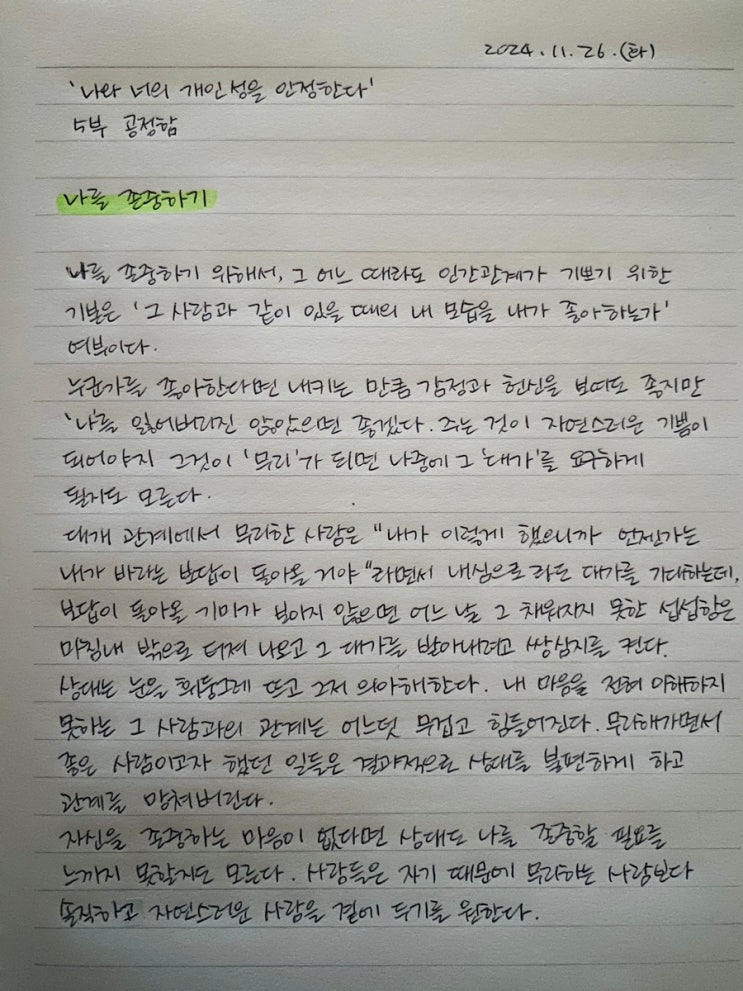 2024.11.26.(화)
'나와 너의 개인성을 인정한다'
5부 공정함
나를 존중하기
나를 존중하기 위해서, 그 어느 때라도 인간관계가 기쁘기 위한
기본은 '그 사람과 같이 있을 때의 내 모습을 내가 좋아하는가'
여부이다.
누군가를 좋아한다면 내키는 만큼 감정과 헌신을 보여도 좋지만
'나'를 잃어버리진 않았으면 좋겠다. 주는 것이 자연스러운 기쁨이
되어야지 그것이 '무리'가 되면 나중에 그 '대가'를 요구하게
될지도 모른다.
대개 관계에서 무리한 사람은 "내가 이렇게 했으니까 언젠가는
내가 바라는 보답이 돌아올 거야"라면서 내심으로라도 대가를 기대하는데,
보답이 돌아올 기미가 보이지 않으면 어느 날 그 채워지지 못한 섭섭함은
마침내 밖으로 터져 나오고 그 대가를 받아내려고 쌍심지를 켠다.
상대는 눈을 휘둥그레 뜨고 그저 의아해한다. 내 마음을 전혀 이해하지
못하는 그 사람과의 관계는 어느덧 무겁고 힘들어진다. 무리해가면서
좋은 사람이고자 했던 일들은 결과적으로 상대를 불편하게 하고
관계를 망쳐버린다.
자신을 존중하는 마음이 없다면 상대도 나를 존중할 필요를
느끼지 못할지도 모른다. 사람들은 자기 때문에 무리하는 사람보다
솔직하고 자연스러운 사람을 곁에 두기를 원한다.